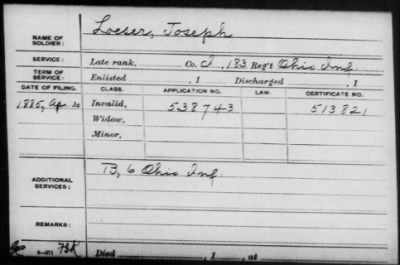 NAME OF SOLDIER: Loeser, Joseph
SERVICE: Late rank, Co. I, 183 Reg't Ohio Inf.
TERM OF SERVICE: Enlisted , 1 Discharged , 1
DATE OF FILING. CLASS. APPLICATION NO. LAW. CERTIFICATE NO.
1885, Ap. 30 Invalid, 538743 513821
Widow,
Minor,
ADDITIONAL SERVICES: B, 6 Ohio Inf.
REMARKS:
Died , 1 , at